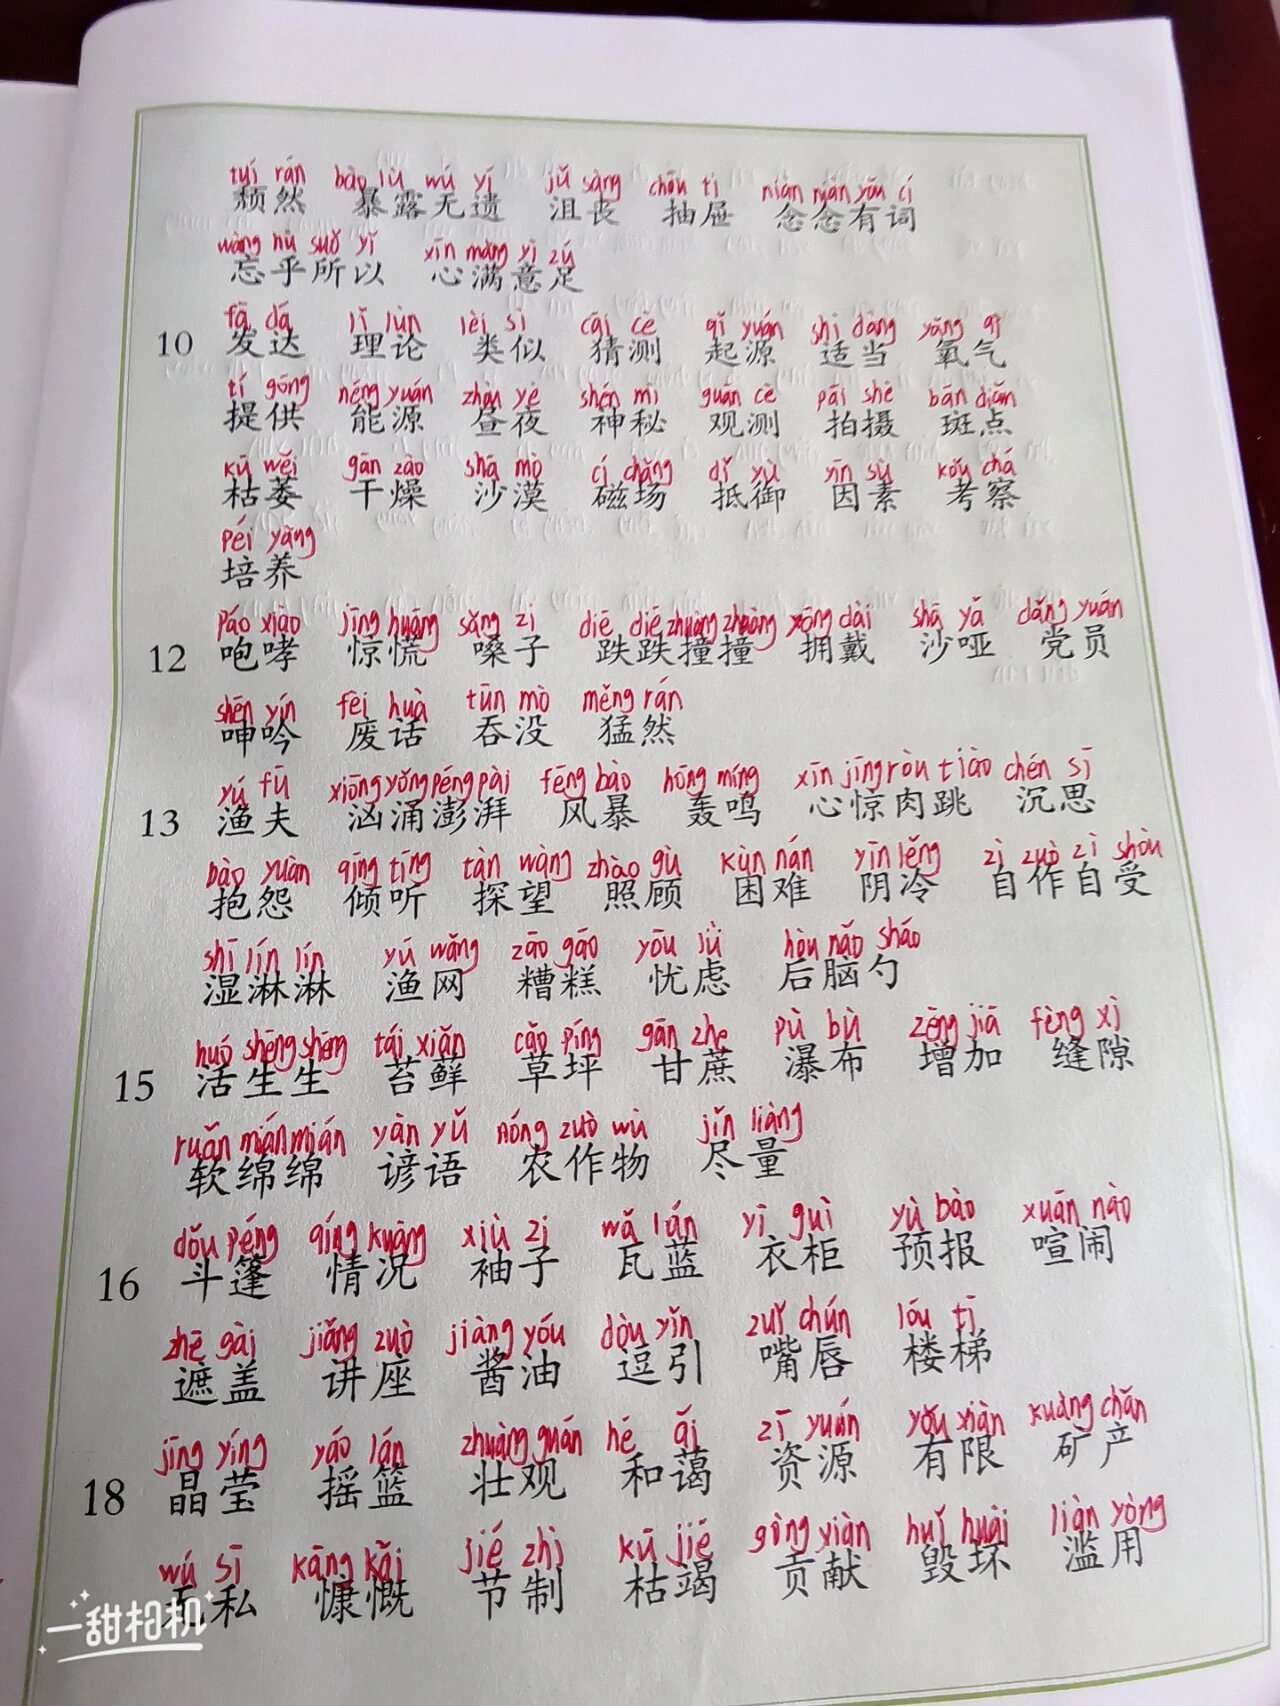 tuí rán bào lù wú yí jǔ sàng chōu ti niàn niàn yǒu cí
颓然 暴露无遗 沮丧 抽屉 念念有词
wàng hū suǒ yǐ xīn mǎn yì zú
忘乎所以 心满意足
fā dá lǐ lùn lèi sì cāi cè qǐ yuán shì dàng yǎng qì
10 发达 理论 类似 猜测 起源 适当 氧气
tí gōng néng yuán zhòu yè shén mì guān cè pāi shè bān diǎn
提供 能源 昼夜 神秘 观测 拍摄 斑点
kū wěi gān zào shā mò cí chǎng dǐ yù yīn sù kǎo chá
枯萎 干燥 沙漠 磁场 抵御 因素 考察
péi yǎng
培养
páo xiào jīng huāng sǎng zi diē diē zhuàng zhuàng yōng dài shā yǎ dǎng yuán
12 咆哮 惊慌 嗓子 跌跌撞撞 拥戴 沙哑 党员
shēn yín fèi huà tūn mò měng rán
呻吟 废话 吞没 猛然
yú fū xiōng yǒng péng pài fēng bào hōng míng xīn jīng ròu tiào chén sī
13 渔夫 汹涌澎湃 风暴 轰鸣 心惊肉跳 沉思
bào yuàn qīng tīng tàn wàng zhào gù kùn nán yīn lěng zì zuò zì shòu
抱怨 倾听 探望 照顾 困难 阴冷 自作自受
shī lín lín yú wǎng zāo gāo yōu lǜ hòu nǎo sháo
湿淋淋 渔网 糟糕 忧虑 后脑勺
huó shēng shēng tái xiǎn cǎo píng gān zhe pù bù zēng jiā fèng xì
15 活生生 苔藓 草坪 甘蔗 瀑布 增加 缝隙
ruǎn mián mián yàn yǔ nóng zuò wù jǐn liàng
软绵绵 谚语 农作物 尽量
dǒu péng qíng kuàng xiù zi wǎ lán yī guì yù bào xuān nào
16 斗篷 情况 袖子 瓦蓝 衣柜 预报 喧闹
zhē gài jiǎng zuò jiàng yóu dòu yǐn zuǐ chún lóu tī
遮盖 讲座 酱油 逗引 嘴唇 楼梯
jīng yíng yáo lán zhuàng guān hé ǎi zī yuán yǒu xiàn kuàng chǎn
18 晶莹 摇篮 壮观 和蔼 资源 有限 矿产
wú sī kāng kǎi jié zhì kū jié gòng xiàn huǐ huài làn yòng
无私 慷慨 节制 枯竭 贡献 毁坏 滥用
一甜相机